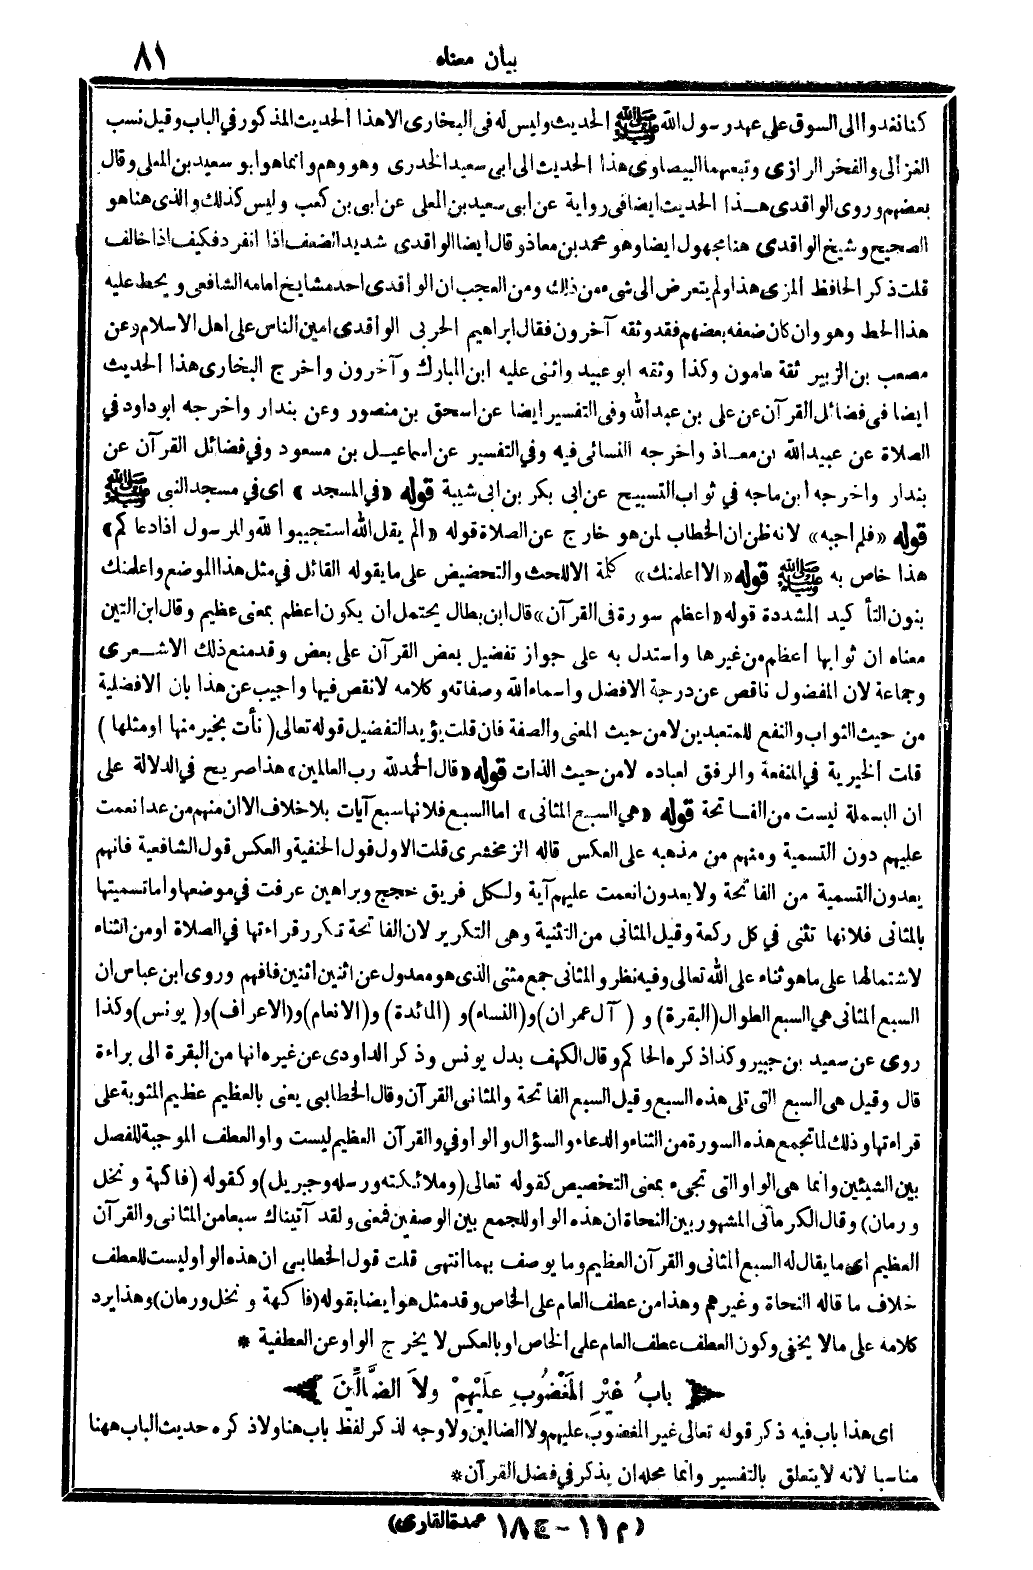 بيان معناه ٨١
كنا نغدوا الى السوق على عهد رسول الله ﷺ الحديث وليس له فى البخارى الا هذا الحديث المذكور في الباب وقيل نسب
الغزالى والفخر الرازى وتبعهما البيضاوى هذا الحديث الى ابى سعيد الخدرى وهو وهم وانما هو ابو سعيد بن المعلى وقال
بعضهم وروى الواقدى هذا الحديث ايضا فى رواية عن ابى سعيد بن المعلى عن ابى بن كعب وليس كذلك والذى هنا هو
الصحيح وشيخ الواقدى هنا مجهول ايضا وهو محمد بن معاذ وقال ايضا الواقدى شديد الضعف اذا انفرد فكيف اذا خالف
قلت ذكر الحافظ المزى هذا ولم يتعرض الى شىء من ذلك ومن العجب ان الواقدى احد مشايخ امامه الشافعى ويحط عليه
هذا الحط وهو وان كان ضعفه بعضهم فقد وثقه آخرون فقال ابراهيم الحربى الواقدى امين الناس على اهل الاسلام وعن
مصعب بن الزبير ثقة مامون وكذا وثقه ابو عبيد واثنى عليه ابن المبارك وآخرون واخرج البخارى هذا الحديث
ايضا فى فضائل القرآن عن على بن عبد الله وفى التفسير ايضا عن اسحق بن منصور وعن بندار واخرجه ابو داود في
الصلاة عن عبيد الله بن معاذ واخرجه النسائى فيه وفي التفسير عن اسماعيل بن مسعود وفي فضائل القرآن عن
بندار واخرجه ابن ماجه في ثواب التسبيح عن ابى بكر بن ابى شيبة قوله «في المسجد» اى في مسجد النبى ﷺ
قوله «فلم اجبه» لانه ظن ان الخطاب لمن هو خارج عن الصلاة قوله «الم يقل الله استجيبوا لله وللرسول اذا دعاكم»
هذا خاص به ﷺ قوله «الا اعلمنك» كلمة الا للحث والتحضيض على ما يقوله القائل في مثل هذا الموضع واعلمنك
بنون التأكيد المشددة قوله «اعظم سورة فى القرآن» قال ابن بطال يحتمل ان يكون اعظم بمعنى عظيم وقال ابن التين
معناه ان ثوابها اعظم من غيرها واستدل به على جواز تفضيل بعض القرآن على بعض وقد منع ذلك الاشعرى
وجماعة لان المفضول ناقص عن درجة الافضل واسماء الله وصفاته وكلامه لا نقص فيها واجيب عن هذا بان الافضلية
من حيث الثواب والنفع للمتعبدين لا من حيث المعنى والصفة فان قلت يؤيد التفضيل قوله تعالى (نأت بخير منها او مثلها)
قلت الخيرية في المنفعة والرفق لعباده لا من حيث الذات قوله «قال الحمد لله رب العالمين» هذا صريح في الدلالة على
ان البسملة ليست من الفاتحة قوله «هي السبع المثانى» اما السبع فلانها سبع آيات بلا خلاف الا ان منهم من عد انعمت
عليهم دون التسمية ومنهم من مذهبه على العكس قاله الزمخشرى قلت الاول قول الحنفية والعكس قول الشافعية فانهم
يعدون التسمية من الفاتحة ولا يعدون انعمت عليهم آية ولكل فريق حجج وبراهين عرفت في موضعها واما تسميتها
بالمثانى فلانها تثنى في كل ركعة وقيل المثانى من التثنية وهى التكرير لان الفاتحة تكرر قراءتها في الصلاة او من الثناء
لاشتمالها على ما هو ثناء على الله تعالى وفيه نظر والمثانى جمع مثنى الذى هو معدول عن اثنين اثنين فافهم وروى ابن عباس ان
السبع المثانى هي السبع الطوال (البقرة) و (آل عمران) و(النساء) و (المائدة) و(الانعام) و(الاعراف) و( يونس) وكذا
روى عن سعيد بن جبير وكذا ذكره الحاكم وقال الكهف بدل يونس وذكر الداودى عن غيره انها من البقرة الى براءة
قال وقيل هى السبع التى تلى هذه السبع وقيل السبع الفاتحة والمثانى القرآن وقال الخطابى يعنى بالعظيم عظيم المثوبة على
قراءتها وذلك لما تجمع هذه السورة من الثناء والدعاء والسؤال والواو في والقرآن العظيم ليست واو العطف الموجبة للفصل
بين الشيئين وانما هى الواو التى تجىء بمعنى التخصيص كقوله تعالى (وملائكته ورسله وجبريل) وكقوله (فاكهة ونخل
ورمان) وقال الكرمانى المشهور بين النحاة ان هذه الواو للجمع بين الوصفين فمعنى ولقد آتيناك سبعا من المثانى والقرآن
العظيم اى ما يقال له السبع المثانى والقرآن العظيم وما يوصف بهما انتهى قلت قول الخطابى ان هذه الواو ليست للعطف
خلاف ما قاله النحاة وغيرهم وهذا من عطف العام على الخاص وقد مثل هو ايضا بقوله (فاكهة ونخل ورمان) وهذا يرد
كلامه على ما لا يخفى وكون العطف عطف العام على الخاص او بالعكس لا يخرج الواو عن العطفية *
بابُ غَيْرِ المَغْضُوبِ عَلَيْهِمْ وَلاَ الضَّالِّينَ
اى هذا باب فيه ذكر قوله تعالى غير المغضوب عليهم ولا الضالين ولا وجه لذكر لفظ باب هنا ولا ذكره حديث الباب ههنا
مناسبا لانه لا يتعلق بالتفسير وانما محله ان يذكر في فضل القرآن*
(م ١١ - ج ١٨ عمدة القارى)